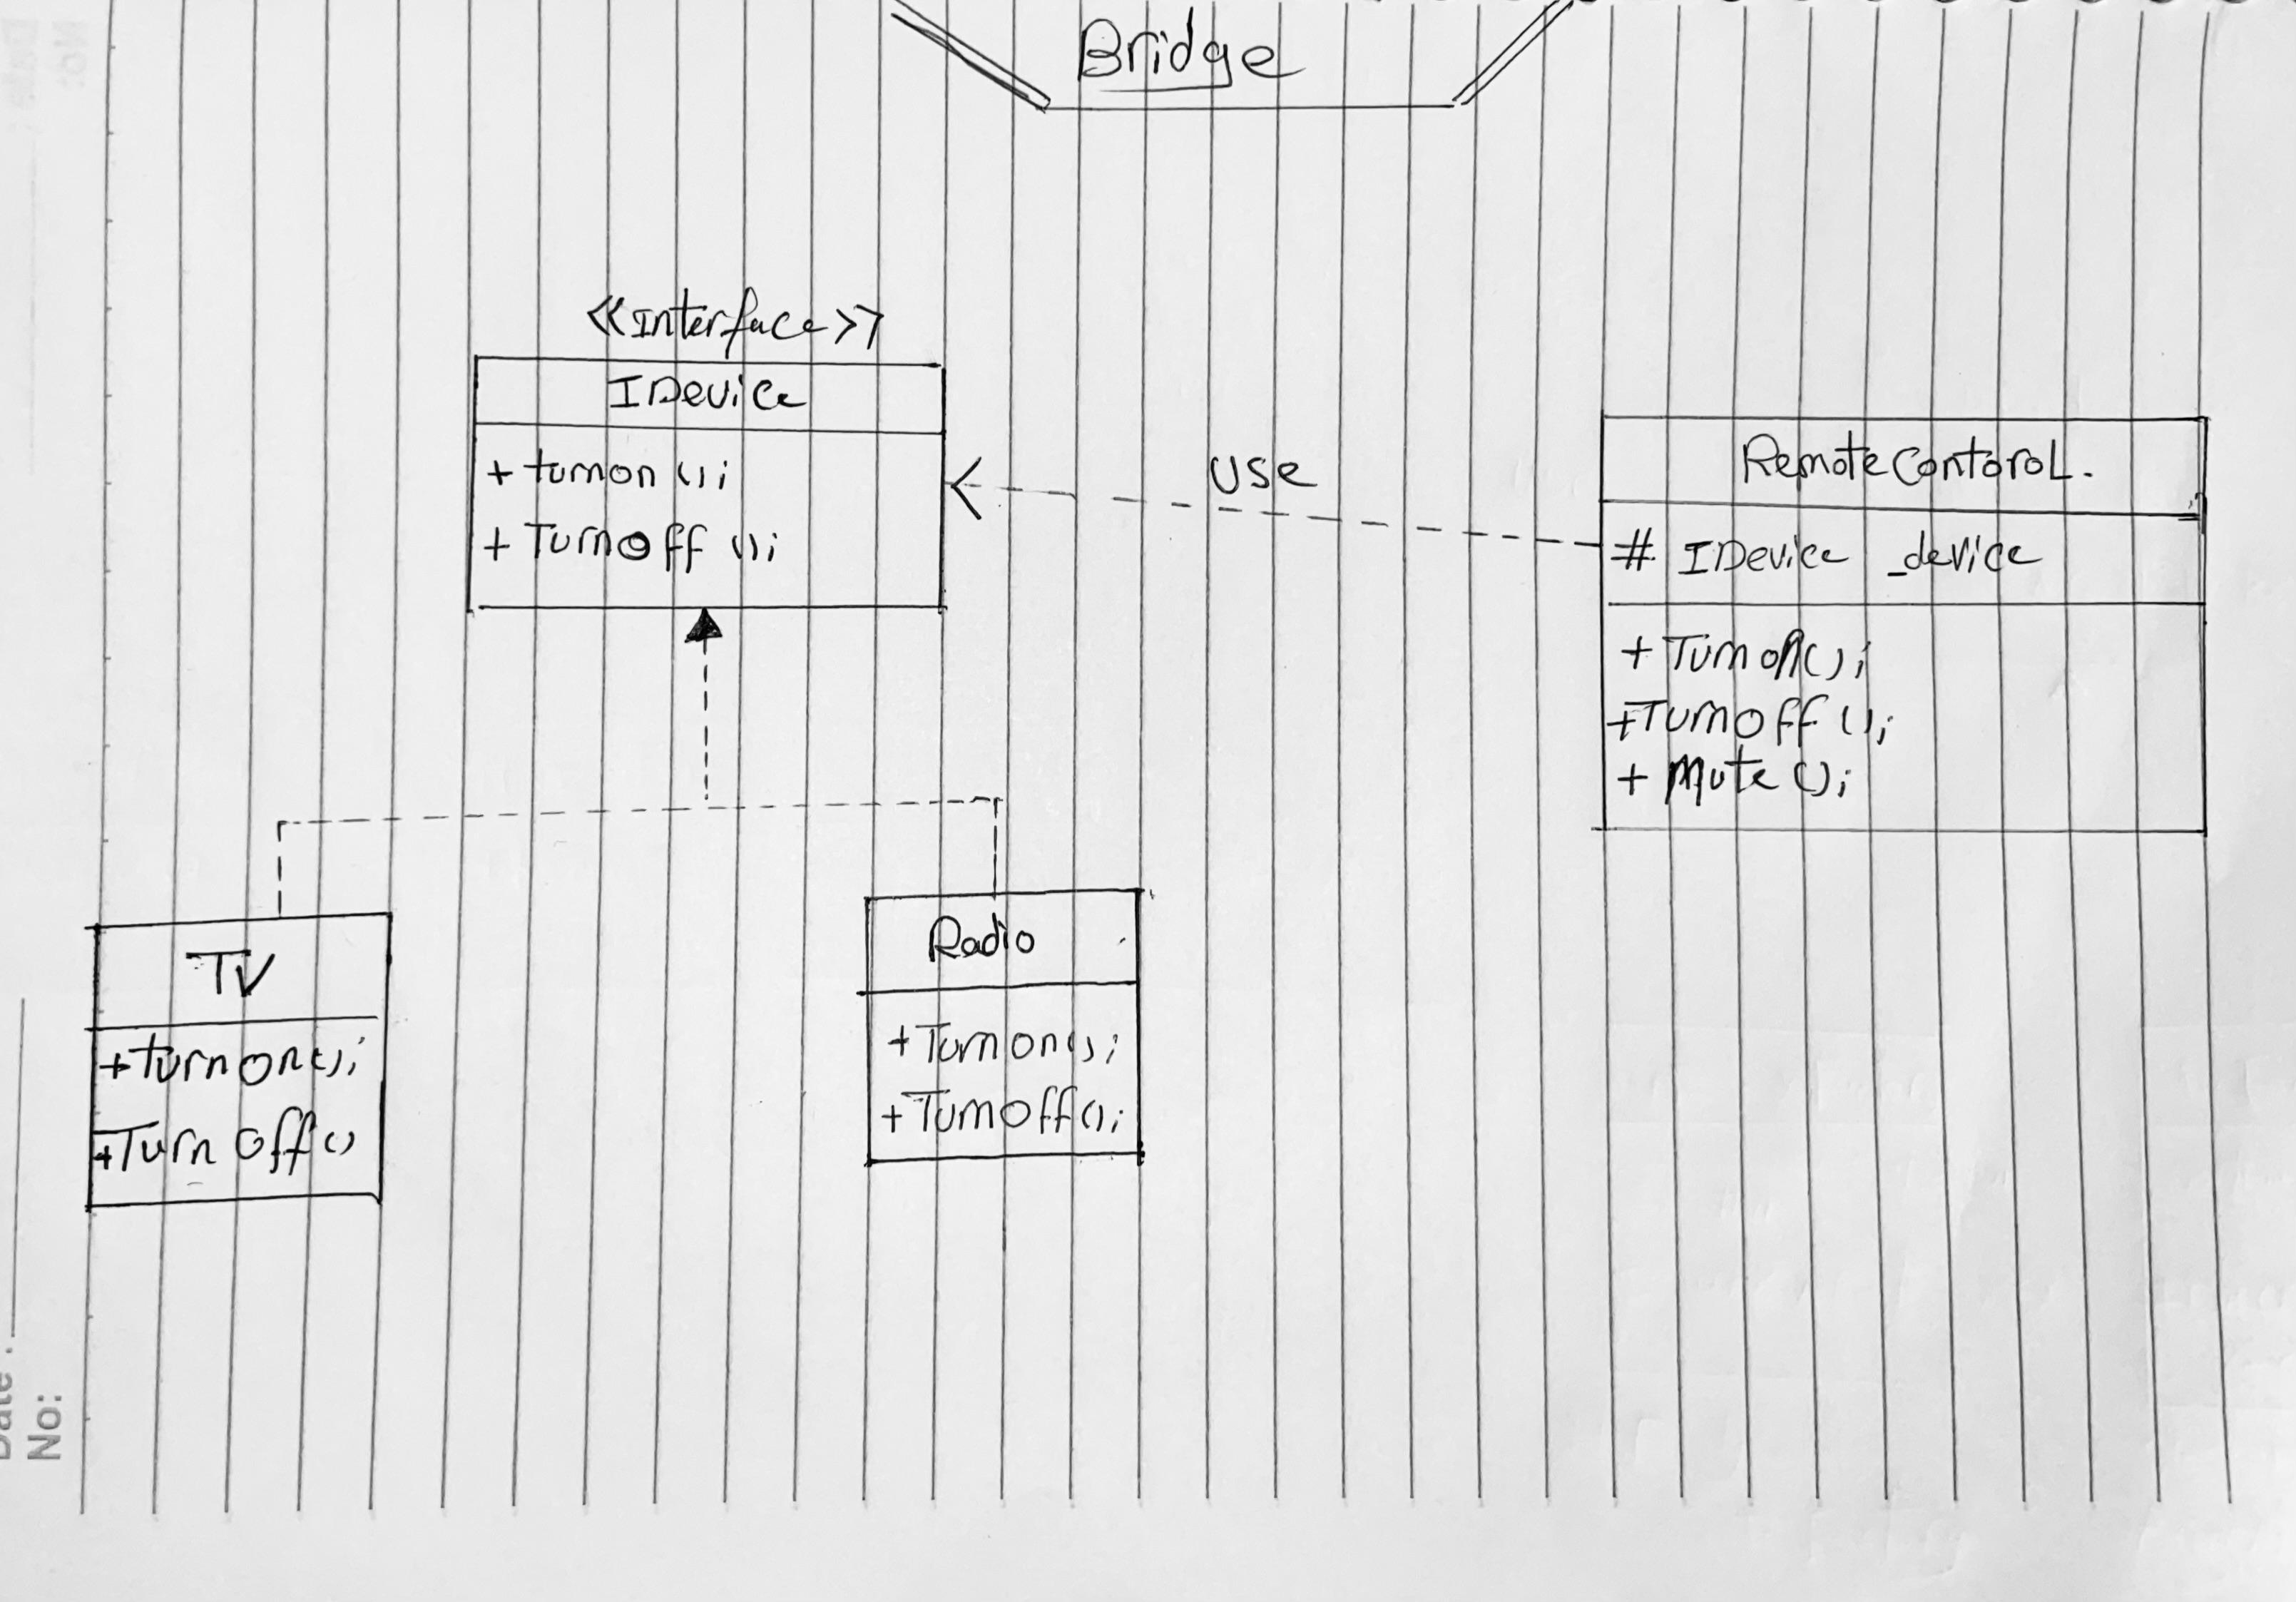 Bridge
<<Interface>>
IDevice
+ turnon ();
+ Turnoff ();
use
RemoteContorol.
# IDevice _device
+ Turnon();
+Turnoff ();
+ Mute ();
TV
+turnon();
+Turn off()
Radio
+Turnon();
+Turnoff();
No:
Date :
Date :
No: